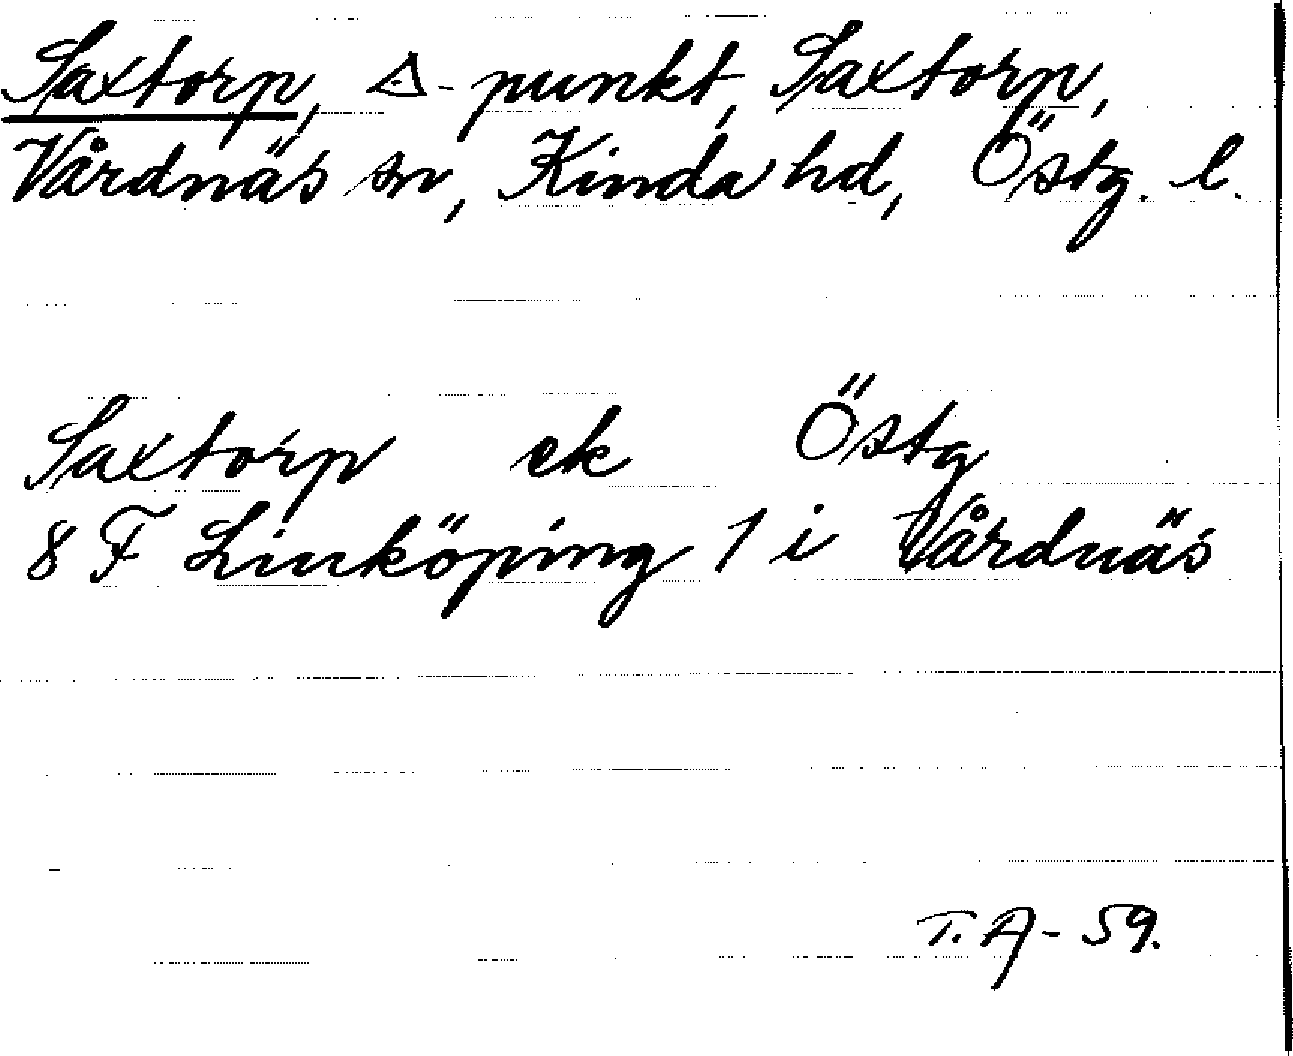 Saxtorp, △-punkt, Saxtorp,
Vårdnäs sn, Kinda hd, Östg. l.
Saxtorp ek Östg
8 F Linköping 1 i Vårdnäs
T. A - 59.